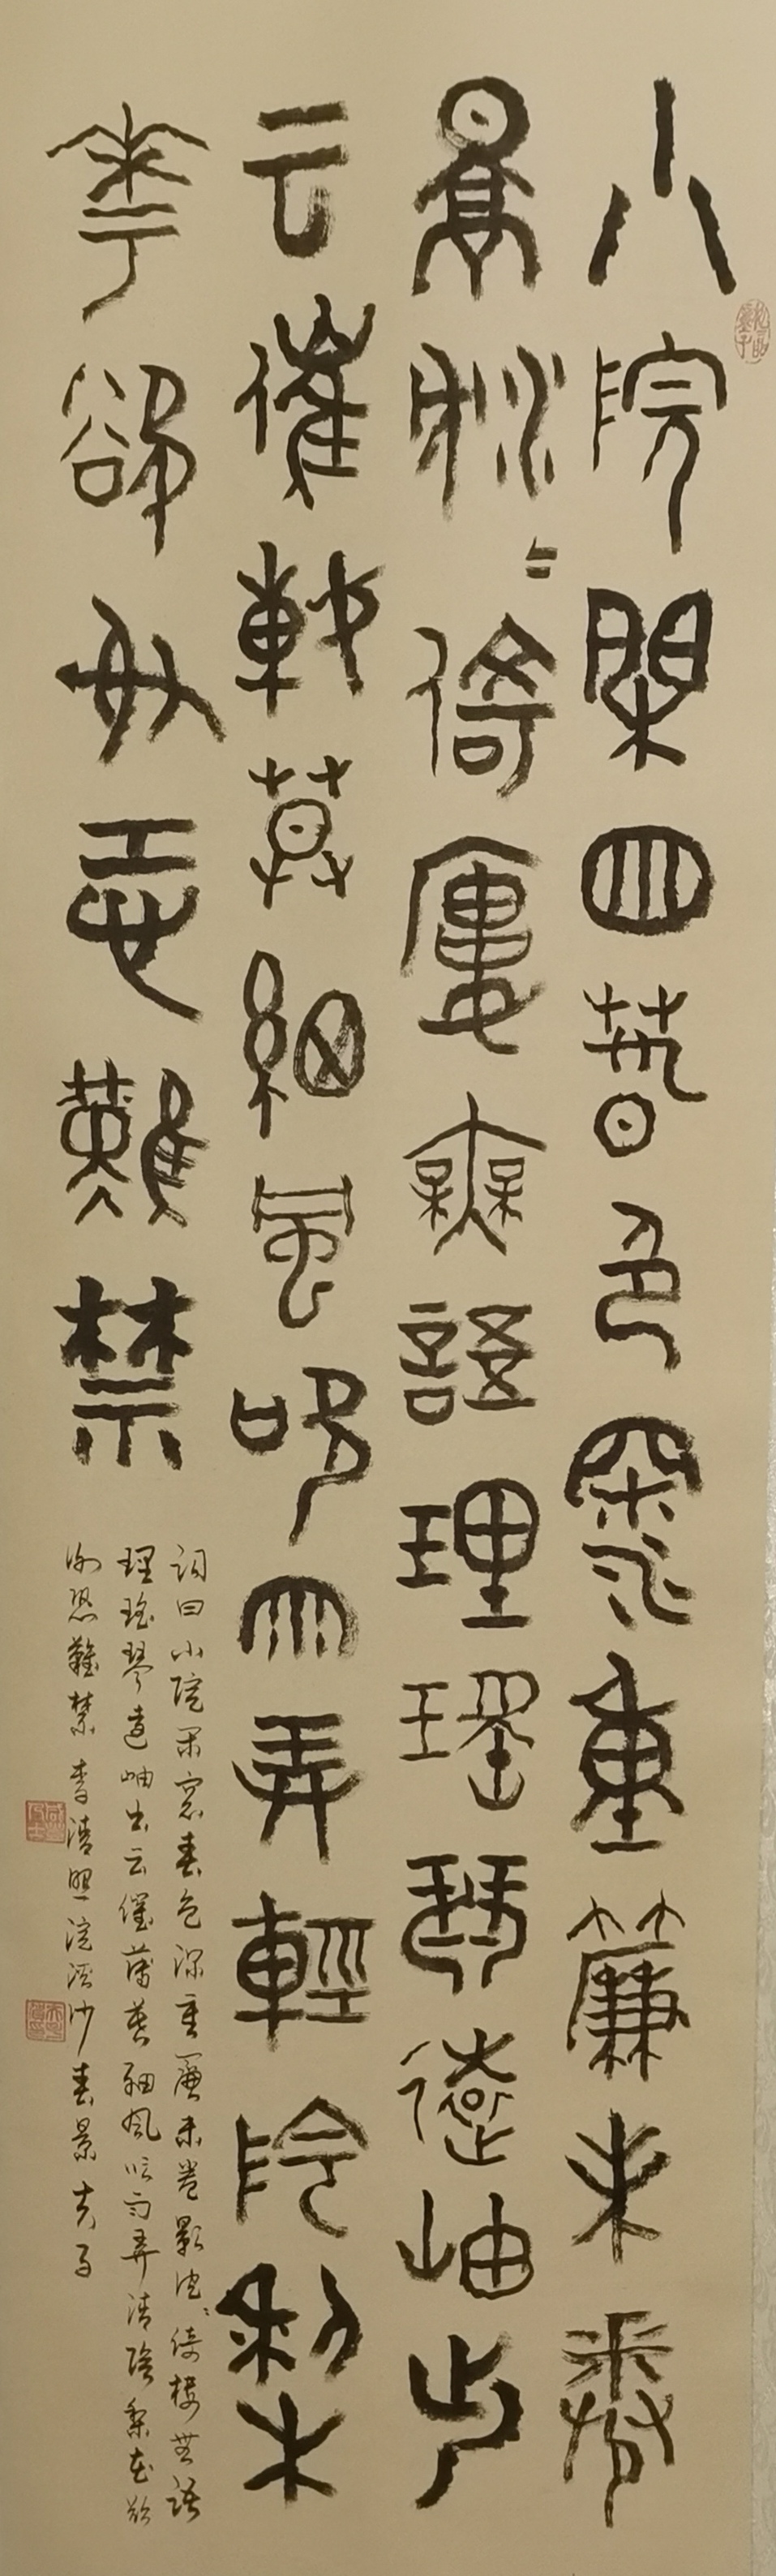 小院閑窗春色深重簾未卷
影沈沈倚樓無語理瑤琴遠岫出
云催薄莫細風吹雨弄輕陰梨
花欲謝恐難禁
詞曰小院閑窗春色深重簾未卷影沈沈倚樓無語
理瑤琴遠岫出云催薄莫細風吹雨弄清陰梨花欲
謝恐難禁李清照浣溪沙春景